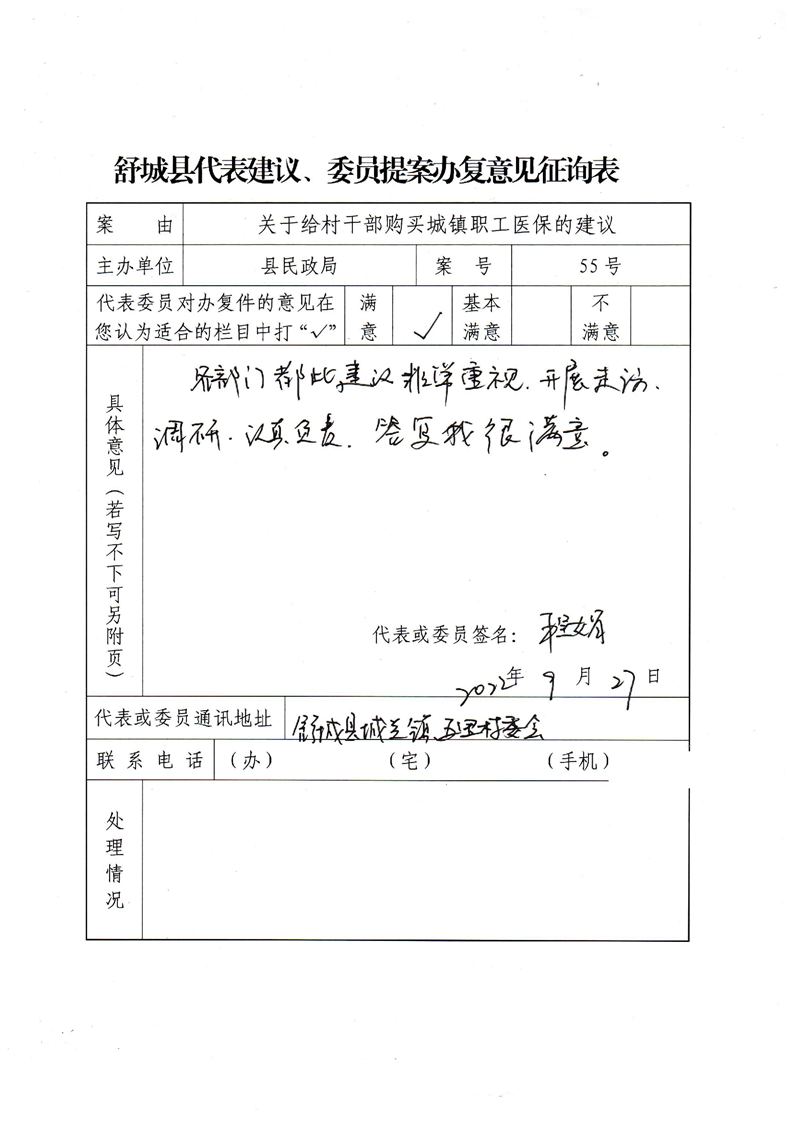 舒城县代表建议、委员提案办复意见征询表
案 由 关于给村干部购买城镇职工医保的建议
主办单位 县民政局 案 号 55号
代表委员对办复件的意见在您认为适合的栏目中打“✓” 满意 ✓ 基本满意 不满意
具体意见（若写不下可另附页）
部门都此建议非常重视.开展走访、
调研.认真负责.答复我很满意。
代表或委员签名：程娟
2022年 9 月 27 日
代表或委员通讯地址 舒城县城关镇五里村委会
联系电话 （办） （宅） （手机）
处理情况